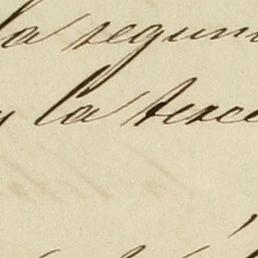 la segun
y la terce